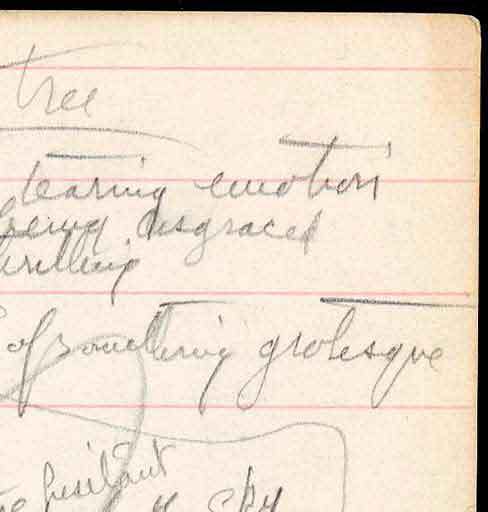 tree
tearing emotion
being disgraced
thrilling
of something grotesque
hesitant
sky